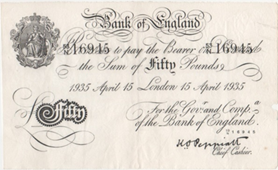 Bank of England
16945 to pay the Bearer on Demand 16945
the Sum of Fifty Pounds
1935 April 15 London 15 April 1935
For the Gov.r and Comp.a
of the Bank of England.
£ Fifty
Chief Cashier.